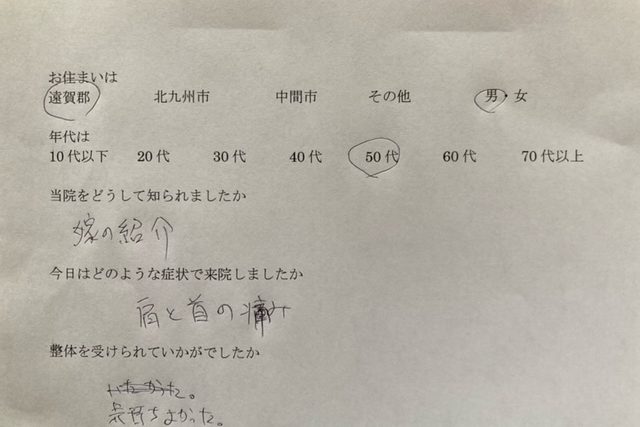 お住まいは
遠賀郡 北九州市 中間市 その他 男・女
年代は
10代以下 20代 30代 40代 50代 60代 70代以上
当院をどうして知られましたか
嫁の紹介
今日はどのような症状で来院しましたか
肩と首の痛み
整体を受けられていかがでしたか
いたかった。
気持ちよかった。